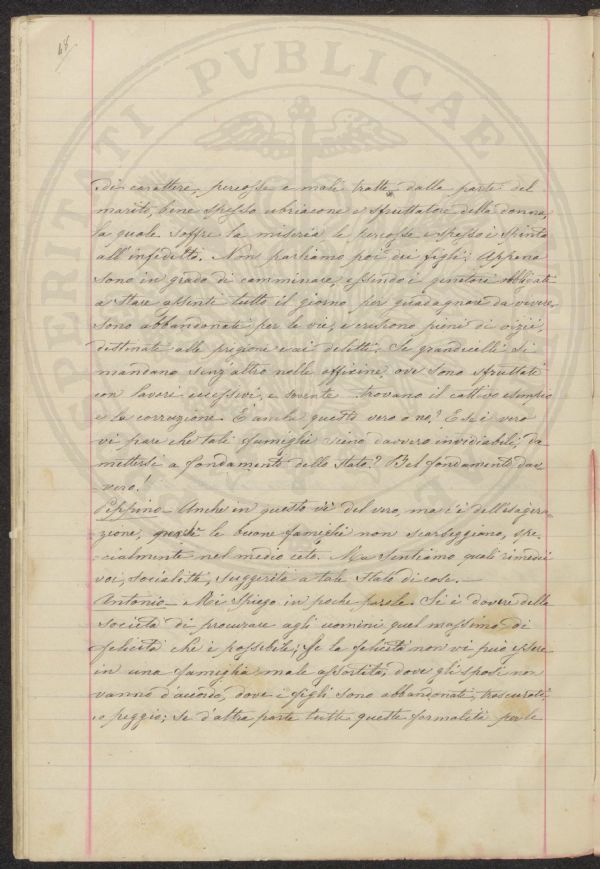 48
di carattere, percosse e mali tratti dalla parte del
marito, bene spesso ubriacone e sfruttatore della donna,
la quale soffre la miseria le percosse e spesso è spinta
all'infedeltà. Non parliamo poi dei figli: Appena
sono in grado di camminare, essendo i genitori obbligati
a stare assenti tutto il giorno per guadagnare da vivere,
sono abbandonati per le vie, e crescono pieni di vizii,
destinati alle prigione e ai delitti. Se grandicelli si
mandano senz'altro nelle officine ove sono sfruttati
con lavori eccessivi, e sovente trovano il cattivo esempio
e la corruzione. È anche questo vero o no? E se è vero
vi pare che tali famiglie sieno davvero invidiabili, da
mettersi a fondamento dello Stato? Bel fondamento dav-
vero!
Peppino — Anche in questo vi è del vero, ma c'è dell'esagera-
zione, perchè le buone famiglie non scarseggiano, spe-
cialmente nel medio ceto. Ma sentiamo quali rimedii
voi, socialisti, suggerite a tale stato di cose. —
Antonio — Mi spiego in poche parole. Si è dovere della
società di procurare agli uomini quel massimo di
felicità che è possibile; se la felicità non vi può essere
in una famiglia male assortita, dove gli sposi non
vanno d'accordo, dove i figli sono abbandonati, trascurati,
o peggio; se d'altra parte tutte queste formalità per le
PVBLICAE